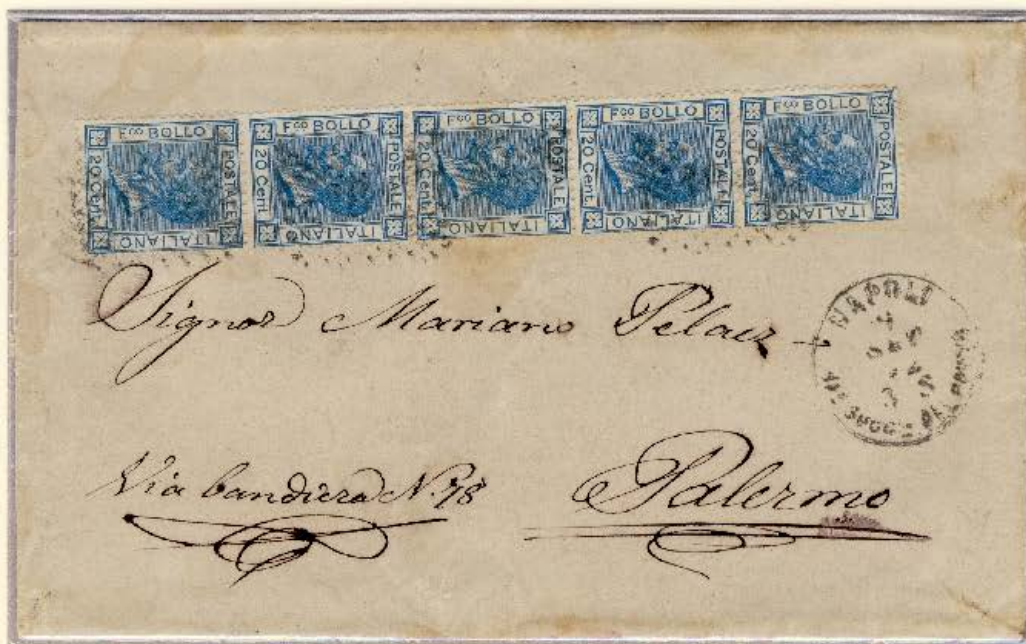 Fco BOLLO POSTALE ITALIANO 20 Cent.
Fco BOLLO POSTALE ITALIANO 20 Cent.
Fco BOLLO POSTALE ITALIANO 20 Cent.
Fco BOLLO POSTALE ITALIANO 20 Cent.
Fco BOLLO POSTALE ITALIANO 20 Cent.
Signor Mariano Pelaez
NAPOLI
4
Via bandiera N. 78
Palermo